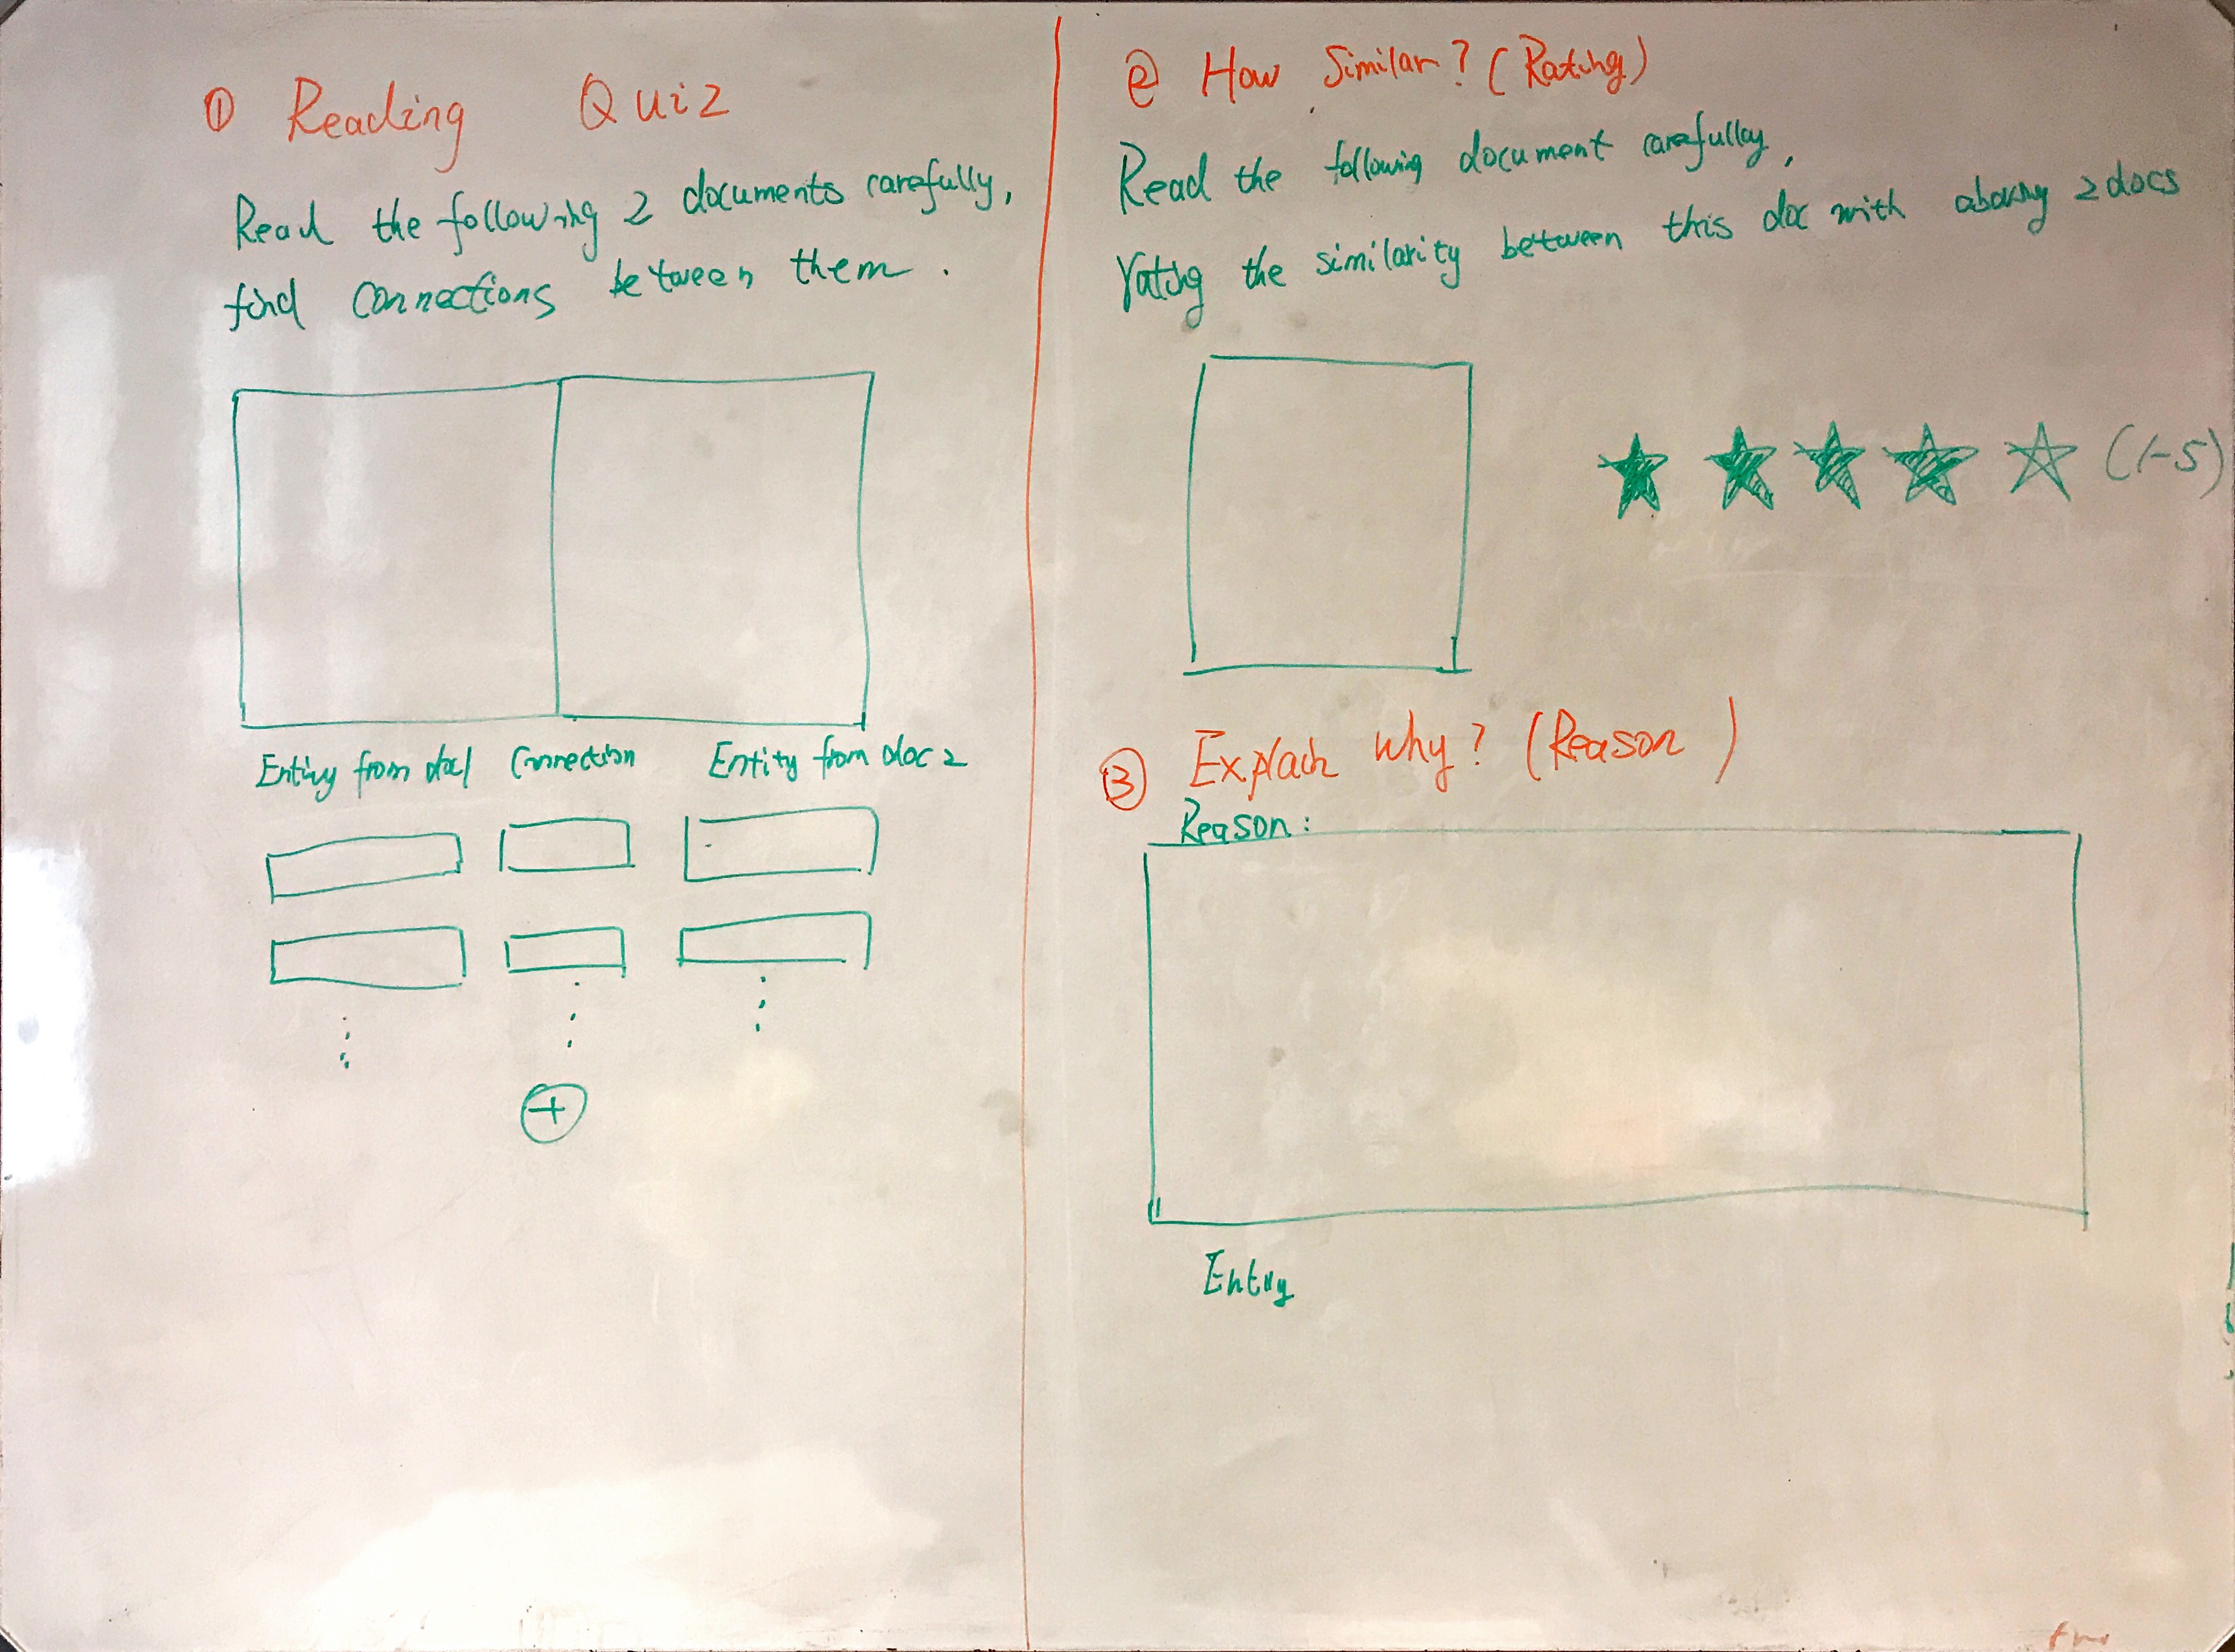 ① Reading Quiz
Read the following 2 documents carefully,
find connections between them.
Entity from doc1 Connection Entity from doc 2
+
② How Similar? (Rating)
Read the following document carefully,
rating the similarity between this doc with 2 docs
(1-5)
③ Explain why? (Reason)
Reason:
Entity